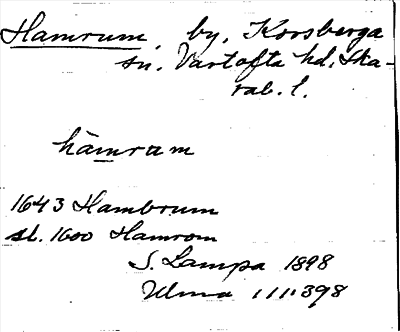 Hamrum, by, Korsberga
sn. Vartofta hd, Ska-
rab. l.
hämram
1643 Hambrum
sl. 1600 Hamrom
S. Lampa 1898
Ulma 111:398